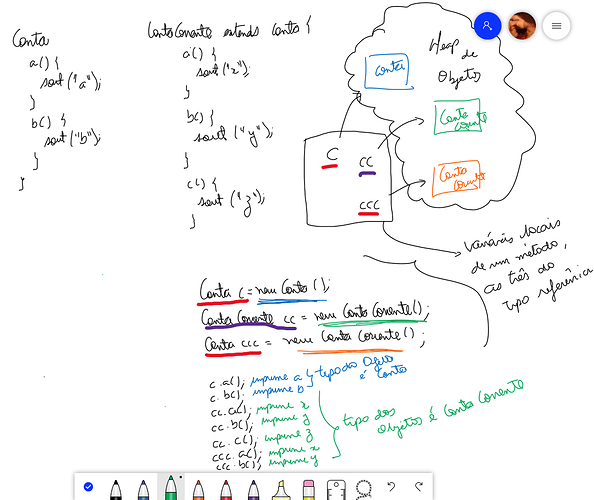 Conta
a() {
sout("a");
}
b() {
sout("b");
}
}
ContaCorrente extends Conta {
a() {
sout("x");
}
b() {
sout("y");
}
c() {
sout("z");
}
Heap
de
Objetos
Conta
Conta
Corrente
Conta
Corrente
C
CC
CCC
Variáveis locais
de um método,
as três do
tipo referência
Conta c = new Conta();
Conta Corrente cc = new Conta Corrente();
Conta ccc = new Conta Corrente();
c.a(); imprime a } tipo do Objeto
c.b(); imprime b é Conta
cc.a(); imprime x
cc.b(); imprime y
cc.c(); imprime z
ccc.a(); imprime x
ccc.b(); imprime y
tipo dos
Objetos é Conta Corrente